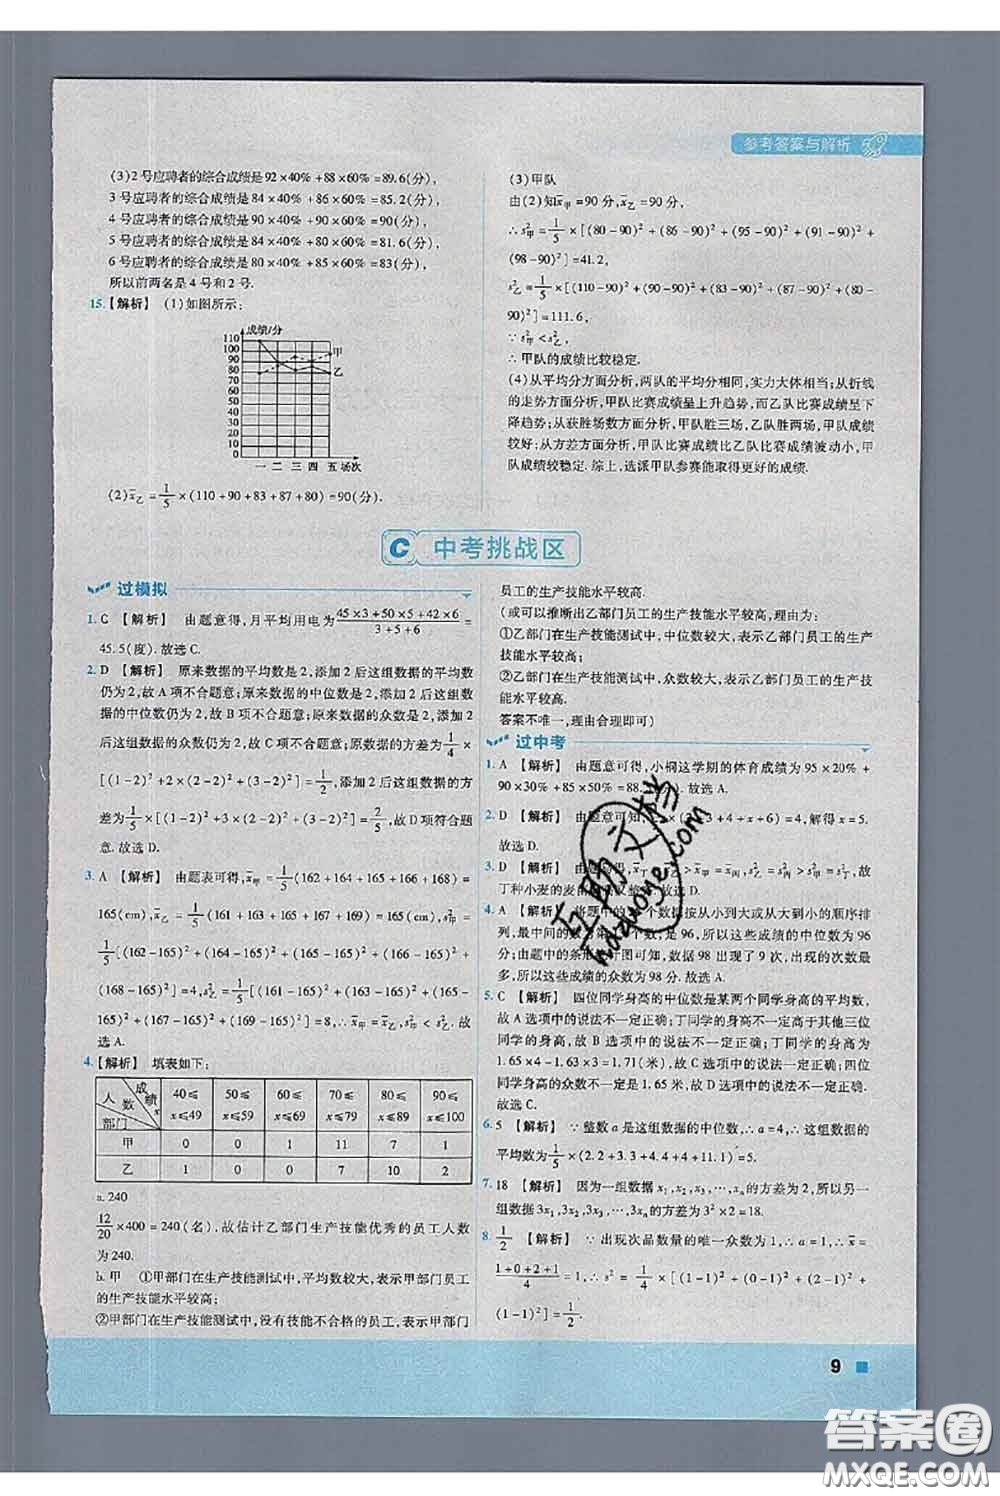 参考答案与解析
(3)2号应聘者的综合成绩是92×40% +88×60% =89.6(分),
3号应聘者的综合成绩是84×40% +86×60% =85.2(分),
4号应聘者的综合成绩是90×40% +90×60% =90(分),
5号应聘者的综合成绩是84×40% +80×60% =81.6(分),
6号应聘者的综合成绩是80×40% +85×60% =83(分),
所以前两名是4号和2号.
15.【解析】 (1)如图所示:
成绩/分
110
100
90
80
70
60
50
40
30
20
10
0
甲
乙
一 二 三 四 五 场次
(2)x̄乙=1/5×(110+90+83+87+80)=90(分).
(3)甲队
由(2)知x̄甲=90分,x̄乙=90分,
∴s²甲=1/5×[(80-90)²+(86-90)²+(95-90)²+(91-90)²+
(98-90)²]=41.2,
s²乙=1/5×[(110-90)²+(90-90)²+(83-90)²+(87-90)²+(80-
90)²]=111.6,
∵s²甲<s²乙,
∴甲队的成绩比较稳定.
(4)从平均分方面分析,两队的平均分相同,实力大体相当;从折线
的走势方面分析,甲队比赛成绩呈上升趋势,而乙队比赛成绩呈下
降趋势;从获胜场数方面分析,甲队胜三场,乙队胜两场,甲队成绩
较好;从方差方面分析,甲队比赛成绩比乙队比赛成绩波动小,甲
队成绩较稳定.综上,选派甲队参赛能取得更好的成绩.
C 中考挑战区
过模拟
1. C 【解析】 由题意得,月平均用电为(45×3+50×5+42×6)/(3+5+6)=
45.5(度).故选C.
2. D 【解析】 原来数据的平均数是2,添加2后这组数据的平均数
仍为2,故A项不合题意;原来数据的中位数是2,添加2后这组数
据的中位数仍为2,故B项不合题意;原来数据的众数是2,添加2
后这组数据的众数仍为2,故C项不合题意;原来数据的方差为1/4×
[(1-2)²+2×(2-2)²+(3-2)²]=1/2,添加2后这组数据的方
差为1/5×[(1-2)²+3×(2-2)²+(3-2)²]=2/5,故D项符合题
意.故选D.
3. A 【解析】 由题表可得,x̄甲=1/5×(162+164+165+166+168)=
165(cm),x̄乙=1/5×(161+163+165+167+169)=165(cm),s²甲=
1/5×[(162-165)²+(164-165)²+(165-165)²+(166-165)²+
(168-165)²]=4,s²乙=1/5×[(161-165)²+(163-165)²+(165-
165)²+(167-165)²+(169-165)²]=8,∴x̄甲=x̄乙,s²甲<s²乙.故
选A.
4.【解析】 填表如下:
成绩x 人数 部门 40≤x≤49 50≤x≤59 60≤x≤69 70≤x≤79 80≤x≤89 90≤x≤100
甲 0 0 1 11 7 1
乙 1 0 0 7 10 2
a. 240
12/20×400=240(名).故估计乙部门生产技能优秀的员工人数
为240.
b. 甲 ①甲部门在生产技能测试中,平均数较大,表示甲部门员工
的生产技能水平较高;
②甲部门在生产技能测试中,没有技能不合格的员工,表示甲部门
员工的生产技能水平较高.
(或可以推断出乙部门员工的生产技能水平较高,理由为:
①乙部门在生产技能测试中,中位数较大,表示乙部门员工的生产
技能水平较高;
②乙部门在生产技能测试中,众数较大,表示乙部门员工的生产技
能水平较高.
答案不唯一,理由合理即可)
过中考
1. A 【解析】 由题意可得,小桐这学期的体育成绩为95×20%+
90×30%+85×50%=88.5(分).故选A.
2. D 【解析】 由题意可知,3+4+x+6)=4,解得x=5.
故选D.
3. D 【解析】
丁种小麦的麦苗 选D.
4. A 【解析】 将题中的 个数据按从小到大或从大到小的顺序排
列,最中间的数 个数,是96,所以这些成绩的中位数为96
分;由题中的条形统计图可知,数据98出现了9次,出现的次数最
多,所以这些成绩的众数为98分.故选A.
5. C 【解析】 四位同学身高的中位数是某两个同学身高的平均数,
故A选项中的说法不一定正确;丁同学的身高不一定高于其他三位
同学的身高,故B选项中的说法不一定正确;丁同学的身高为
1.65×4-1.63×3=1.71(米),故C选项中的说法一定正确;四位
同学身高的众数不一定是1.65米,故D选项中的说法不一定正确.
故选C.
6. 5 【解析】 ∵整数a是这组数据的中位数,∴a=4,∴这组数据
的平均数为1/5×(2.2+3.3+4.4+4+a)=5.
7. 18 【解析】 因为一组数据x₁,x₂,x₃,…,xₙ的方差为2,所以另一
组数据3x₁,3x₂,3x₃,…,3xₙ的方差为3²×2=18.
8. 1/2 【解析】 ∵出现次品数量的唯一众数为1,∴a=1,∴x̄=
(1+0+2+1)/4=1,∴s²=1/4×[(1-1)²+(0-1)²+(2-1)²+
(1-1)²]=1/2.
互助文档
hdzuoye.com
9
答案圈
MXQE.COM